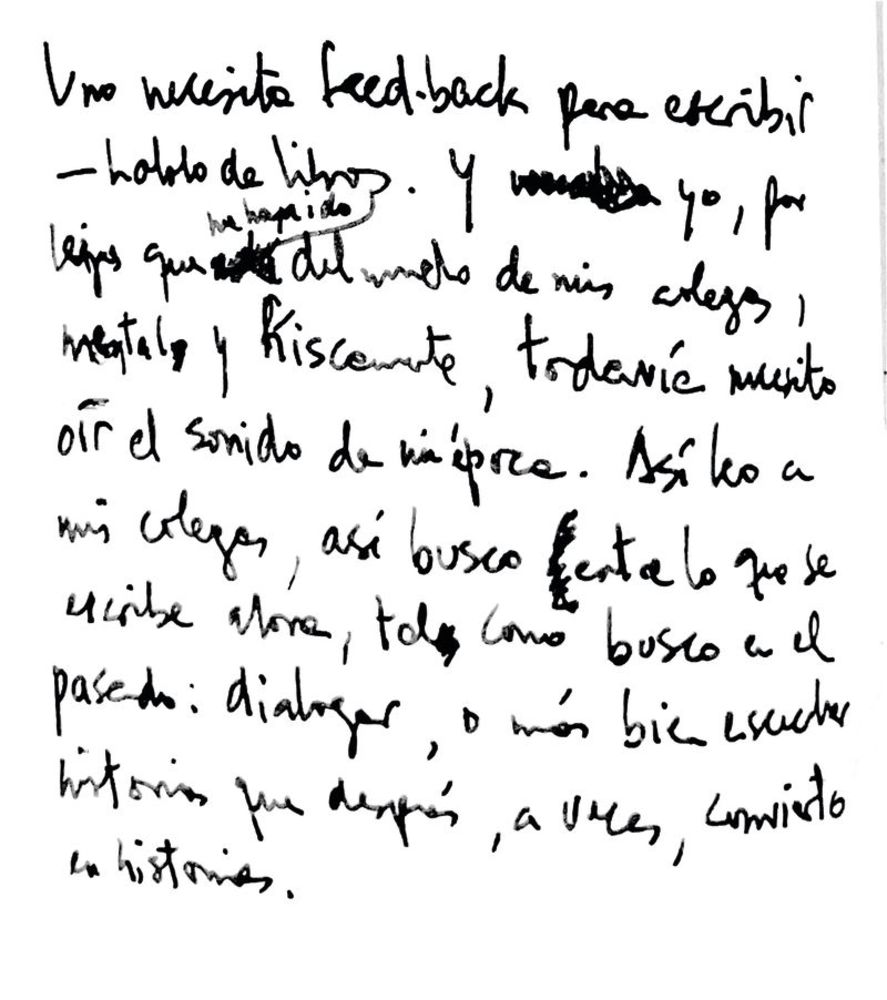 Uno necesita feed-back para escribir
—hablo de libros. Y yo, por
lejos que me haya ido del mundo de mis colegas,
mental y físicamente, todavía necesito
oír el sonido de mi época. Así leo a
mis colegas, así busco entre lo que se
escribe ahora, tal como busco en el
pasado: dialogar, o más bien escuchar
historias que después, a veces, convierto
en historias.